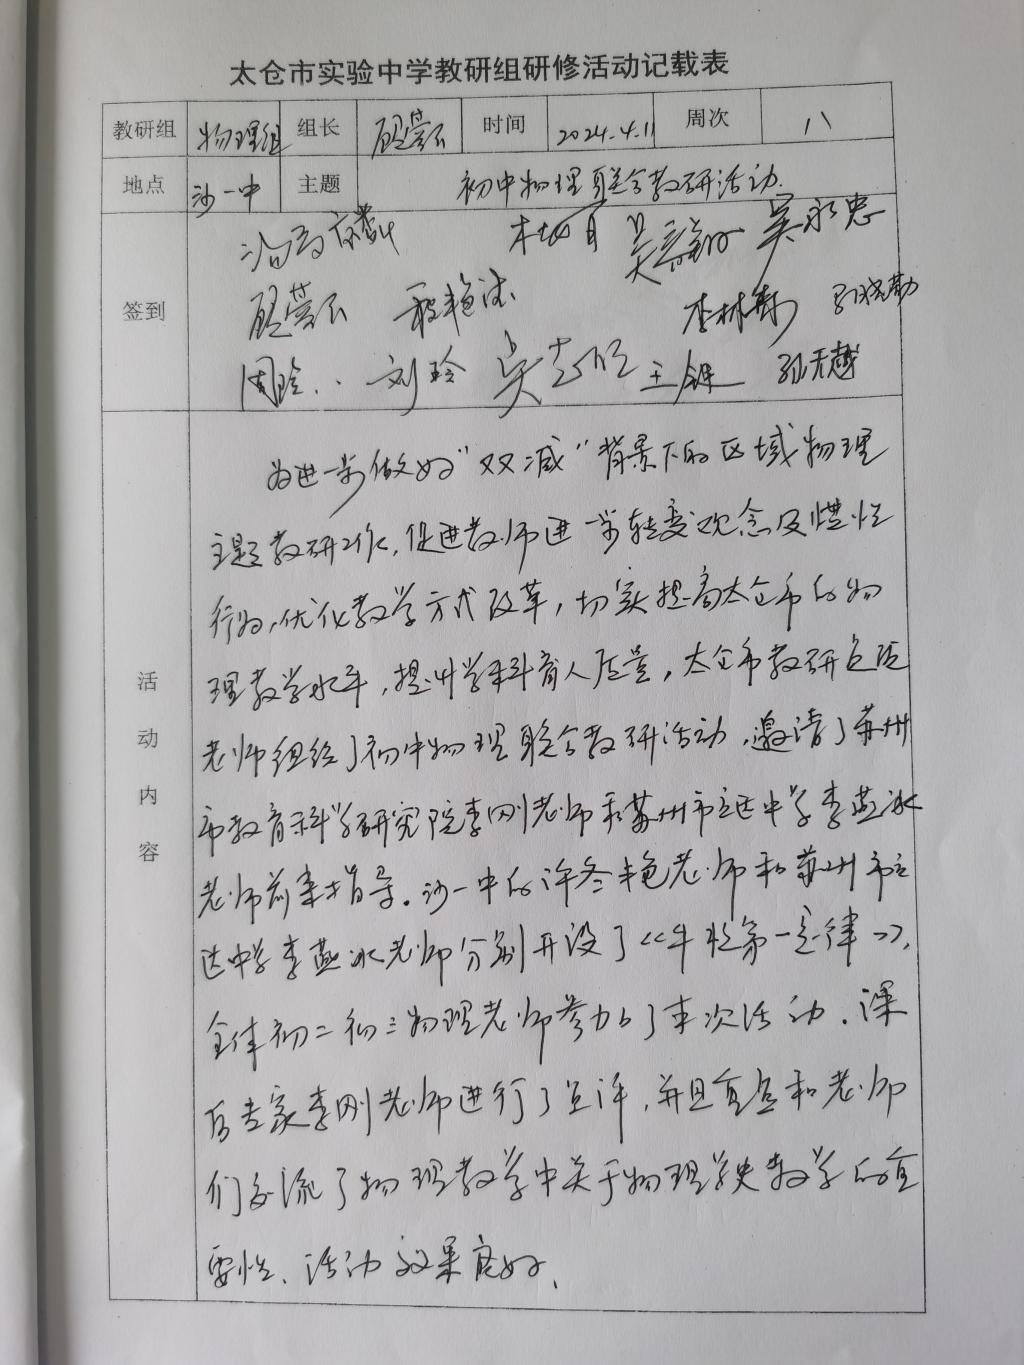 太仓市实验中学教研组研修活动记载表
教研组 物理组 组长 时间 2024.4.11 周次 八
地点 沙一中 主题 初中物理联合教研活动.
签到
吴永忠
刘玲 王
活动内容
为进一步做好"双减"背景下的区域物理
主题教研工作,促进教师进一步转变观念及惯性
行为,优化教学方式改革,切实提高太仓市的物
理教学水平,提升学科育人质量,太仓市教研
老师组织了初中物理联合教研活动,邀请了苏州
市教育科学研究院李刚老师和苏州市立达中学李燕冰
老师前来指导。沙一中的许冬艳老师和苏州市立
达中学李燕冰老师分别开设了《牛顿第一定律》,
全体初二初三物理老师参加了本次活动.课
后专家李刚老师进行了点评,并且重点和老师
们交流了物理教学中关于物理学史教学的重
要性、活动效果良好、